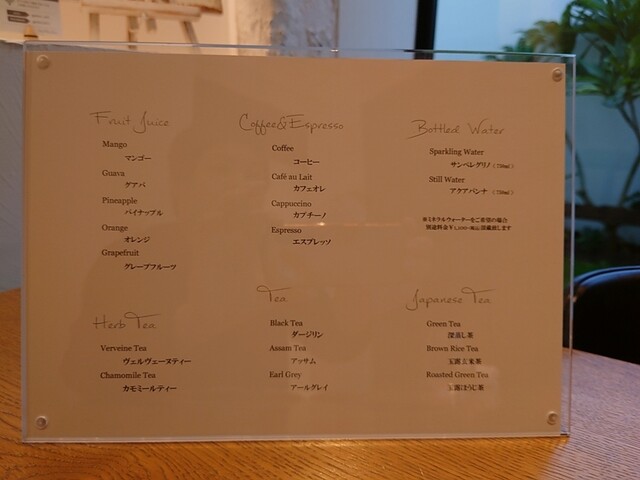 Fruit Juice
Mango
マンゴー
Guava
グアバ
Pineapple
パイナップル
Orange
オレンジ
Grapefruit
グレープフルーツ
Coffee&Espresso
Coffee
コーヒー
Café au Lait
カフェオレ
Cappuccino
カプチーノ
Espresso
エスプレッソ
Bottled Water
Sparkling Water
サンペレグリノ (750mL)
Still Water
アクアパンナ (750mL)
※ミネラルウォーターをご希望の場合
別途料金￥1,200-(税込)頂戴致します
Herb Tea
Verveine Tea
ヴェルヴェーヌティー
Chamomile Tea
カモミールティー
Tea
Black Tea
ダージリン
Assam Tea
アッサム
Earl Grey
アールグレイ
Japanese Tea
Green Tea
深蒸し茶
Brown Rice Tea
玉露玄米茶
Roasted Green Tea
玉露ほうじ茶